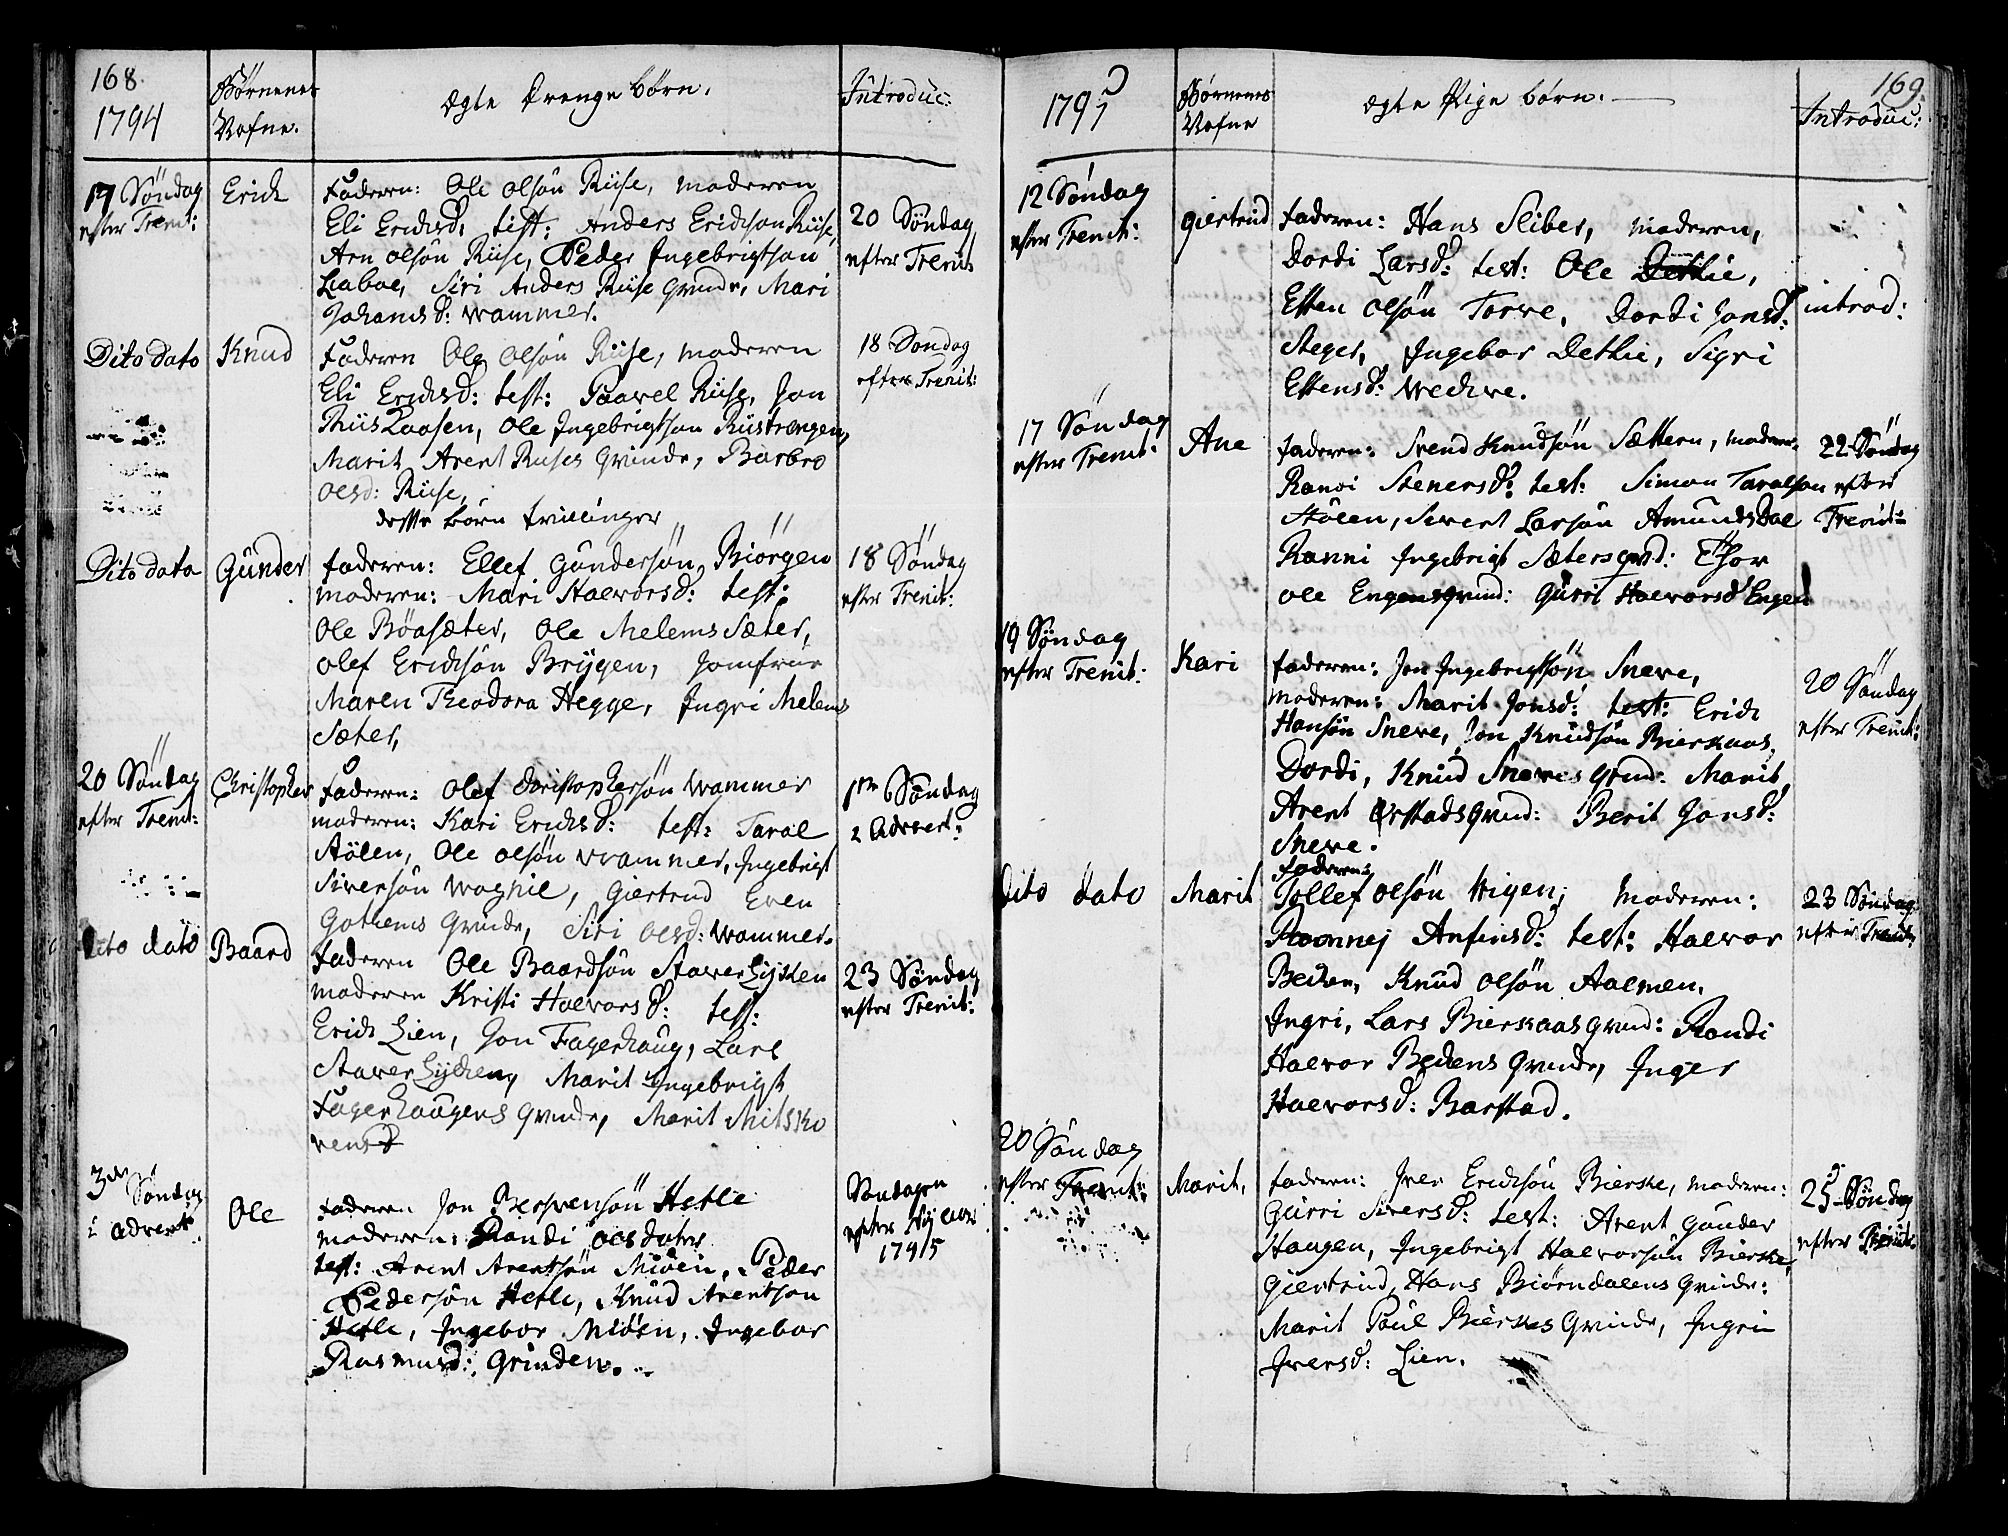 168.
1794
Børnenes
Nafne.
Ægte Drengebørn.
Introduc:
17 Söndag
efter Trenit:
Erich
Faderen: Ole Olsön Riise, Moderen
Eli Erichsd. test: Anders Erichson Riise,
Arn Olsön Riise, Peder Ingebrigtson
Laboe, Siri Anders Riise Qvinde, Mari
Johansd: Wammer.
20 Söndag
efter Trenit
Dito dato
Knud
Faderen Ole Olsön Riise, Moderen
Eli Erichsd: test: Paavel Riise, Jon
Riis Laasen, Ole Ingebrigtson Riistrengen,
Marit Arent Riises Qvinde, Barbro
Olsd: Riise,
desse børn tvillinger
18 Söndag
efter Trenit:
Dito dato
Gunder
Faderen: Ellef Gundersön, Biörgen
Moderen: Mari Halvorsd: test:
Ole Böasæter, Ole Melems Sæter,
Olef Erichsön Brygen, Jomfrue
Maren Theodora Hegge, Ingri Melems
Sæter,
18 Söndag
efter Trenit:
20 Söndag
efter Trenit:
Christopher
Faderen: Olef Christophersön Wammer
Moderen: Kari Erichsd: test: Taral
Stölen, Ole Olsön Wammer, Ingebrigt
Siversön Wognil, Giertrud Even
Gotems Qvinde, Siri Olsd: Wammer.
1ste Söndag
i Advent:
Dito dato
Baard
Faderen Ole Baardsön Staverlyken
Moderen Kristi Halvorsd: test:
Erich Lien, Jon Fagerhaug, Lars
Staverlyken, Marit Ingebrigt
Fagerhaugens Qvinde, Marit Mitsko
vensd
23 Söndag
efter Trenit:
3de Söndag
i Advent
Ole
Faderen Jon Berfvensön Hetle
Moderen: Randi Olsdater
test: Arent Arentsön Miöen, Peder
Pedersön Hetle, Knud Arentson
Hetle, Ingebor Miöen, Ingebor
Rasmusd: Grinden.
Söndagen
efter Ny aar
1795
1795
Børnenes
Nafne
Ægte Pige børn.
169.
Introduc:
12 Söndag
efter Trenit:
Giertrud
Faderen: Hans Sliber, Moderen,
Dordi Larsd: test: Ole Dethie,
Esten Olsön Torve, Dordi Jonsd:
Steger, Ingebor Dethie, Sigri
Estensd: Wedwe.
introd:
17 Söndag
efter Trenit:
Ane
Faderen: Svend Knudsön Sættern, Moderen
Ranoi Stenersd: test: Simon Taralson
Stölen, Sivert Larsön Amundsdal
Ranni Ingebrigt Sætersqvd: Thor
Ole Engensqvind: Gurri Halvorsd Engen
22 Söndag
efter
Trenit:
19 Söndag
efter Trenit:
Kari
Faderen: Jon Ingebrigtsön Sneve,
Moderen: Marit Jonsd: test: Erich
Hansön Sneve, Jon Knudsön Bierkaas,
Dordi, Knud Sneves qvind: Marit,
Arent Ørstadsqvind: Berit Jonsd:
Sneve.
20 Söndag
efter Trenit:
Dito dato
Marit
Faderen:
Tollef Olsön Wigen, Moderen:
Roonnej Anfinsd: test: Halvor
Beden, Knud Olsön Aalmen,
Ingri, Lars Bierkaas qvind: Randi
Halvor Bedens Qvinde, Inger
Halvorsd: Barstad.
23 Söndag
efter Trenit:
20 Söndag
efter Trenit:
Marit.
Faderen: Iver Erichsön Bierske, Moderen:
Gurri Siversd: test: Arent Gunder
Haugen, Ingebrigt Halvorsön Bierske,
Giertrud, Hans Biörndalens Qvinde:
Marit Poul Bierskes Qvinde, Ingri
Iversd: Lien.
25 Söndag
efter Trenit: